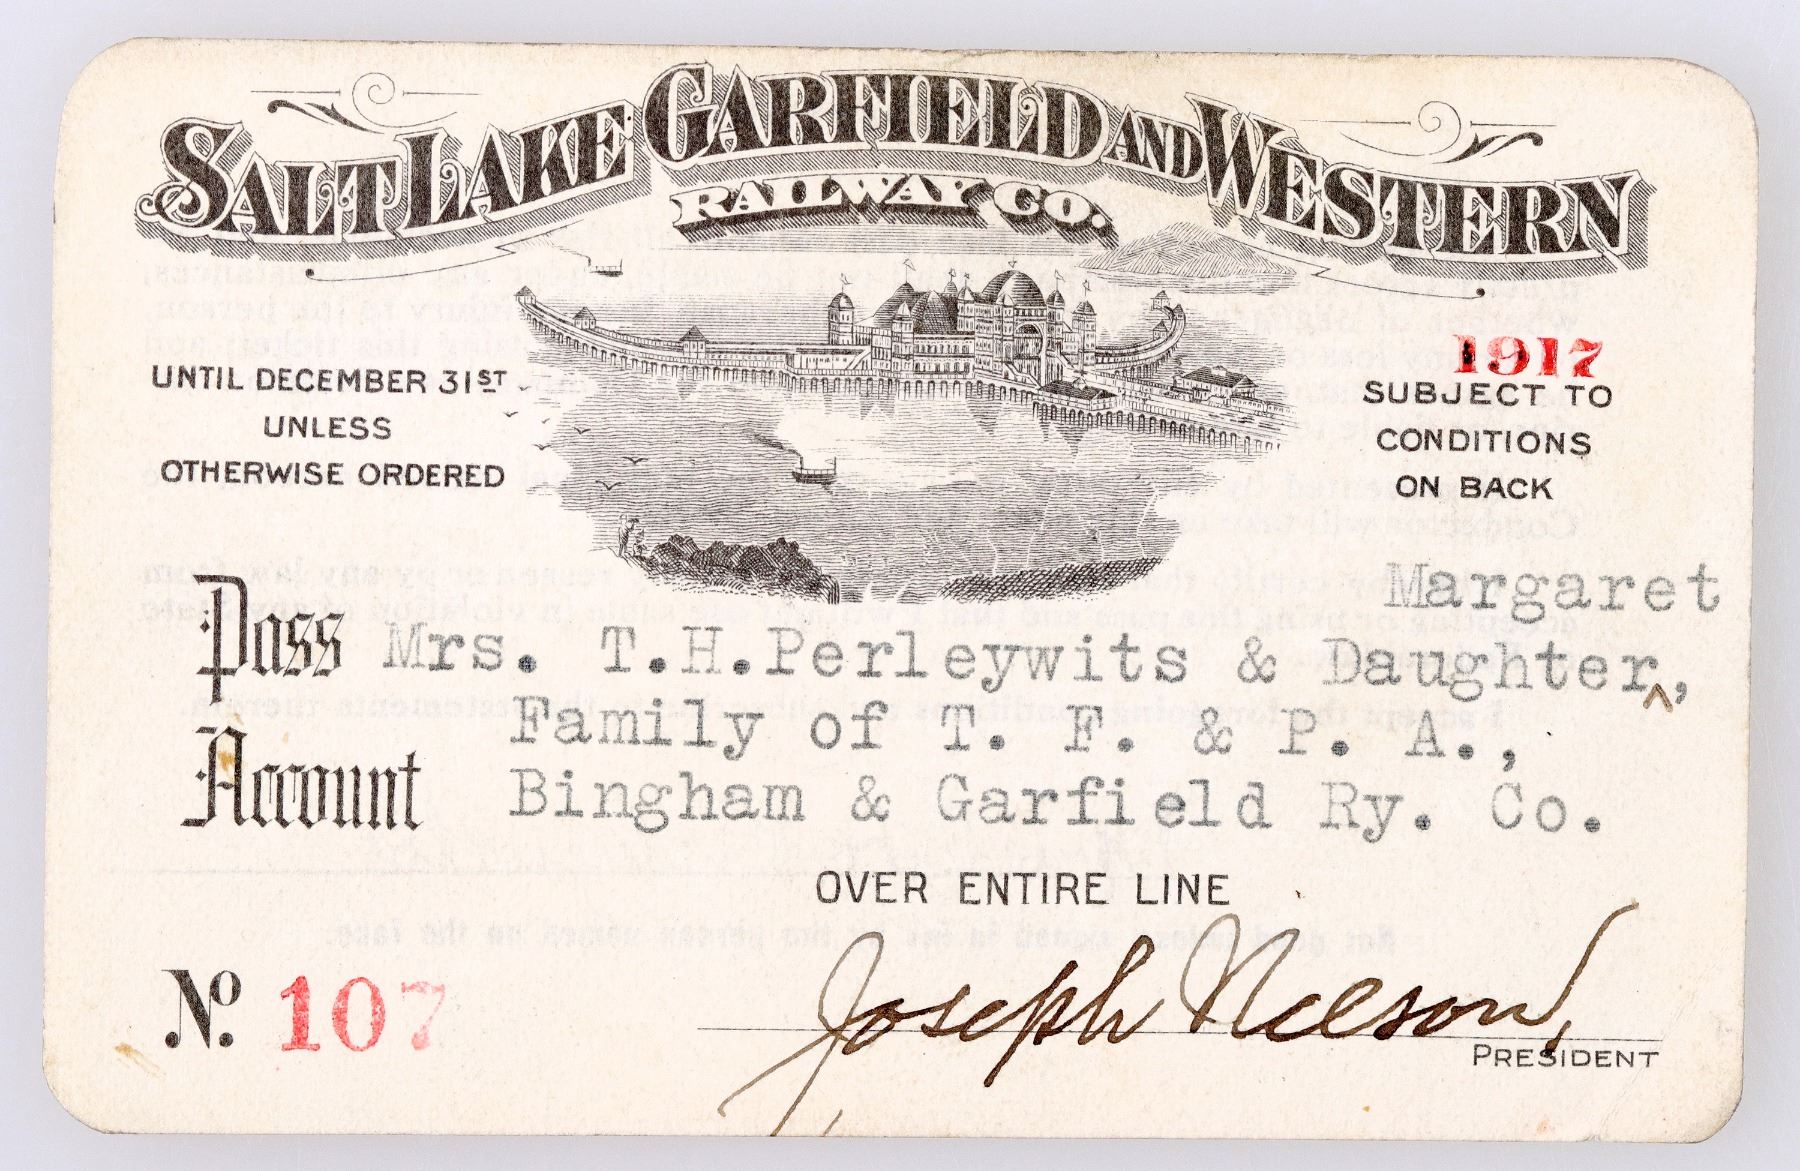 SALT LAKE GARFIELD AND WESTERN
RAILWAY CO.
UNTIL DECEMBER 31ST
UNLESS
OTHERWISE ORDERED
1917
SUBJECT TO
CONDITIONS
ON BACK
Margaret
Pass Mrs. T.H.Perleywits & Daughter‸,
Family of T. F. & P. A.,
Account Bingham & Garfield Ry. Co.
OVER ENTIRE LINE
No. 107
Joseph Nelson
PRESIDENT